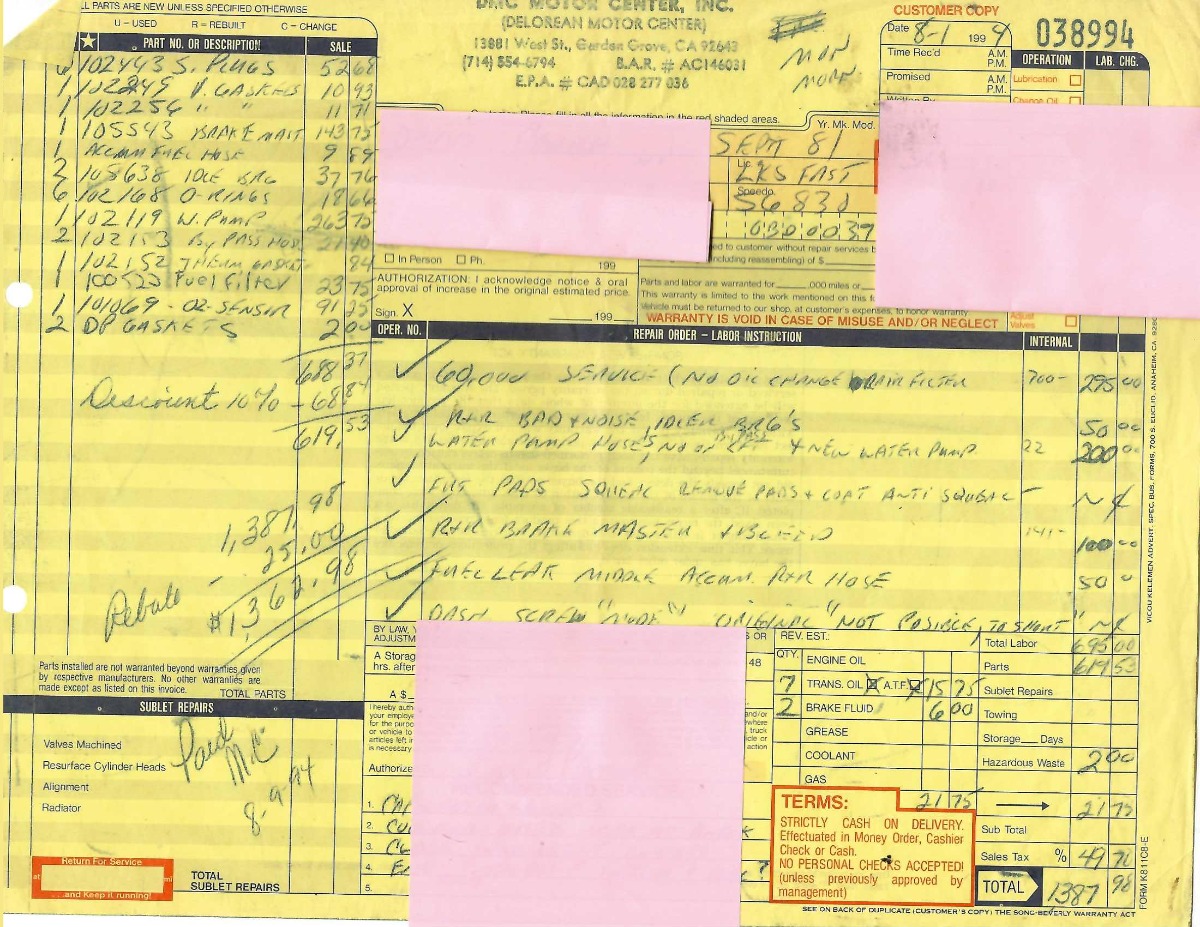 ALL PARTS ARE NEW UNLESS SPECIFIED OTHERWISE
U – USED R – REBUILT C – CHANGE
PART NO. OR DESCRIPTION SALE
6 102443 S. PLUGS 52 68
1 102249 V. GASKETS 10 93
1 102256 " " 11 71
1 105543 BRAKE MAST 143 75
1 ACCUM FUEL HOSE 9 89
2 105638 IDLE BRG 37 76
6 102168 O-RINGS 18 66
1 102119 W. PUMP 263 75
2 102153 BY PASS HOSE
1 102152 THERM GASKET 84
1 100525 Fuel Filter 23 75
1 101069 - O2-SENSOR 91 25
2 DP GASKETS 2 00
688 37
Discount 10% - 68.84
619.53
1,387.98
- 25.00
Rebate $1,362.98
Parts installed are not warranted beyond warranties given
by respective manufacturers. No other warranties are
made except as listed on this invoice.
TOTAL PARTS
SUBLET REPAIRS
Valves Machined
Resurface Cylinder Heads
Alignment
Radiator
Paid MC 8-9-94
Return For Service
at mi
...and Keep it running!
TOTAL
SUBLET REPAIRS
DMC MOTOR CENTER, INC.
(DELOREAN MOTOR CENTER)
13881 West St., Garden Grove, CA 92643
(714) 554-6794 B.A.R. # AC146031
E.P.A. # CAD 028 277 036
MON
MORN
Customer Please fill in all the information in the red shaded areas.
CUSTOMER COPY
Date 8-1 1994
038994
Time Rec'd A.M. P.M.
Promised A.M. P.M.
OPERATION LAB. CHG.
Lubrication
Change Oil
Yr. Mk. Mod.
SEPT 81
Lic.
LKS FAST
Speedo.
56 830
030 0037
In Person Ph. 199
AUTHORIZATION: I acknowledge notice & oral
approval of increase in the original estimated price.
Sign. X 199
ed to customer without repair services b
including reassembling) of $
Parts and labor are warranted for .000 miles or
This warranty is limited to the work mentioned on this
Vehicle must be returned to our shop, at customer's expenses, to honor warranty
WARRANTY IS VOID IN CASE OF MISUSE AND/OR NEGLECT
Adjust Valves
OPER. NO. REPAIR ORDER – LABOR INSTRUCTION INTERNAL
60,000 SERVICE (NO OIL CHANGE OR AIR FILTER 700- 295 00
R+R BAD + NOISE IDLER BRG'S 50 00
WATER PUMP HOSE'S, NO + NEW WATER PUMP 22 200 00
FRT PADS SQUEAL REMOVE PADS + COAT ANTI SQUEAL N/C
R+R BRAKE MASTER + BLEED 141- 100 00
FUEL LEAK MIDDLE ACCUM. R+R HOSE 50 0
DASH SCREW "MODE" ORIGINAL "NOT POSIBLE, TO SHORT" N/C
BY LAW, Y
ADJUSTM
A Storag
hrs. after
A $
I hereby auth
your employe
for the purpo
or vehicle to
articles left i
is necessary
Authorize
1.
2.
3.
4.
5.
S OR
48
and/or
where
truck
cle or
action
REV. EST.:
QTY.
ENGINE OIL
7 TRANS. OIL A.T.F. 15 75
2 BRAKE FLUID 6 00
GREASE
COOLANT
GAS
21 75
TERMS:
STRICTLY CASH ON DELIVERY.
Effectuated in Money Order, Cashier
Check or Cash.
NO PERSONAL CHECKS ACCEPTED!
(unless previously approved by
management)
Total Labor 695 00
Parts 619 53
Sublet Repairs
Towing
Storage Days
Hazardous Waste 2 00
21 75
Sub Total
Sales Tax % 49 70
TOTAL 1387 98
SEE ON BACK OF DUPLICATE (CUSTOMER'S COPY) THE SONG-BEVERLY WARRANTY ACT
VICOU KELEMEN ADVERT. SPEC. BUS. FORMS, 700 S. EUCLID, ANAHEIM, CA 9280
FORM K811C8-E